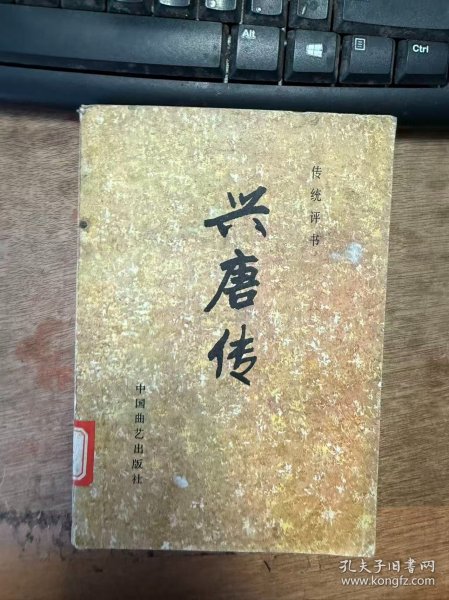 Alt
Ctrl
传统评书
兴唐传
中国曲艺出版社
孔夫子旧书网
www.kongfz.com